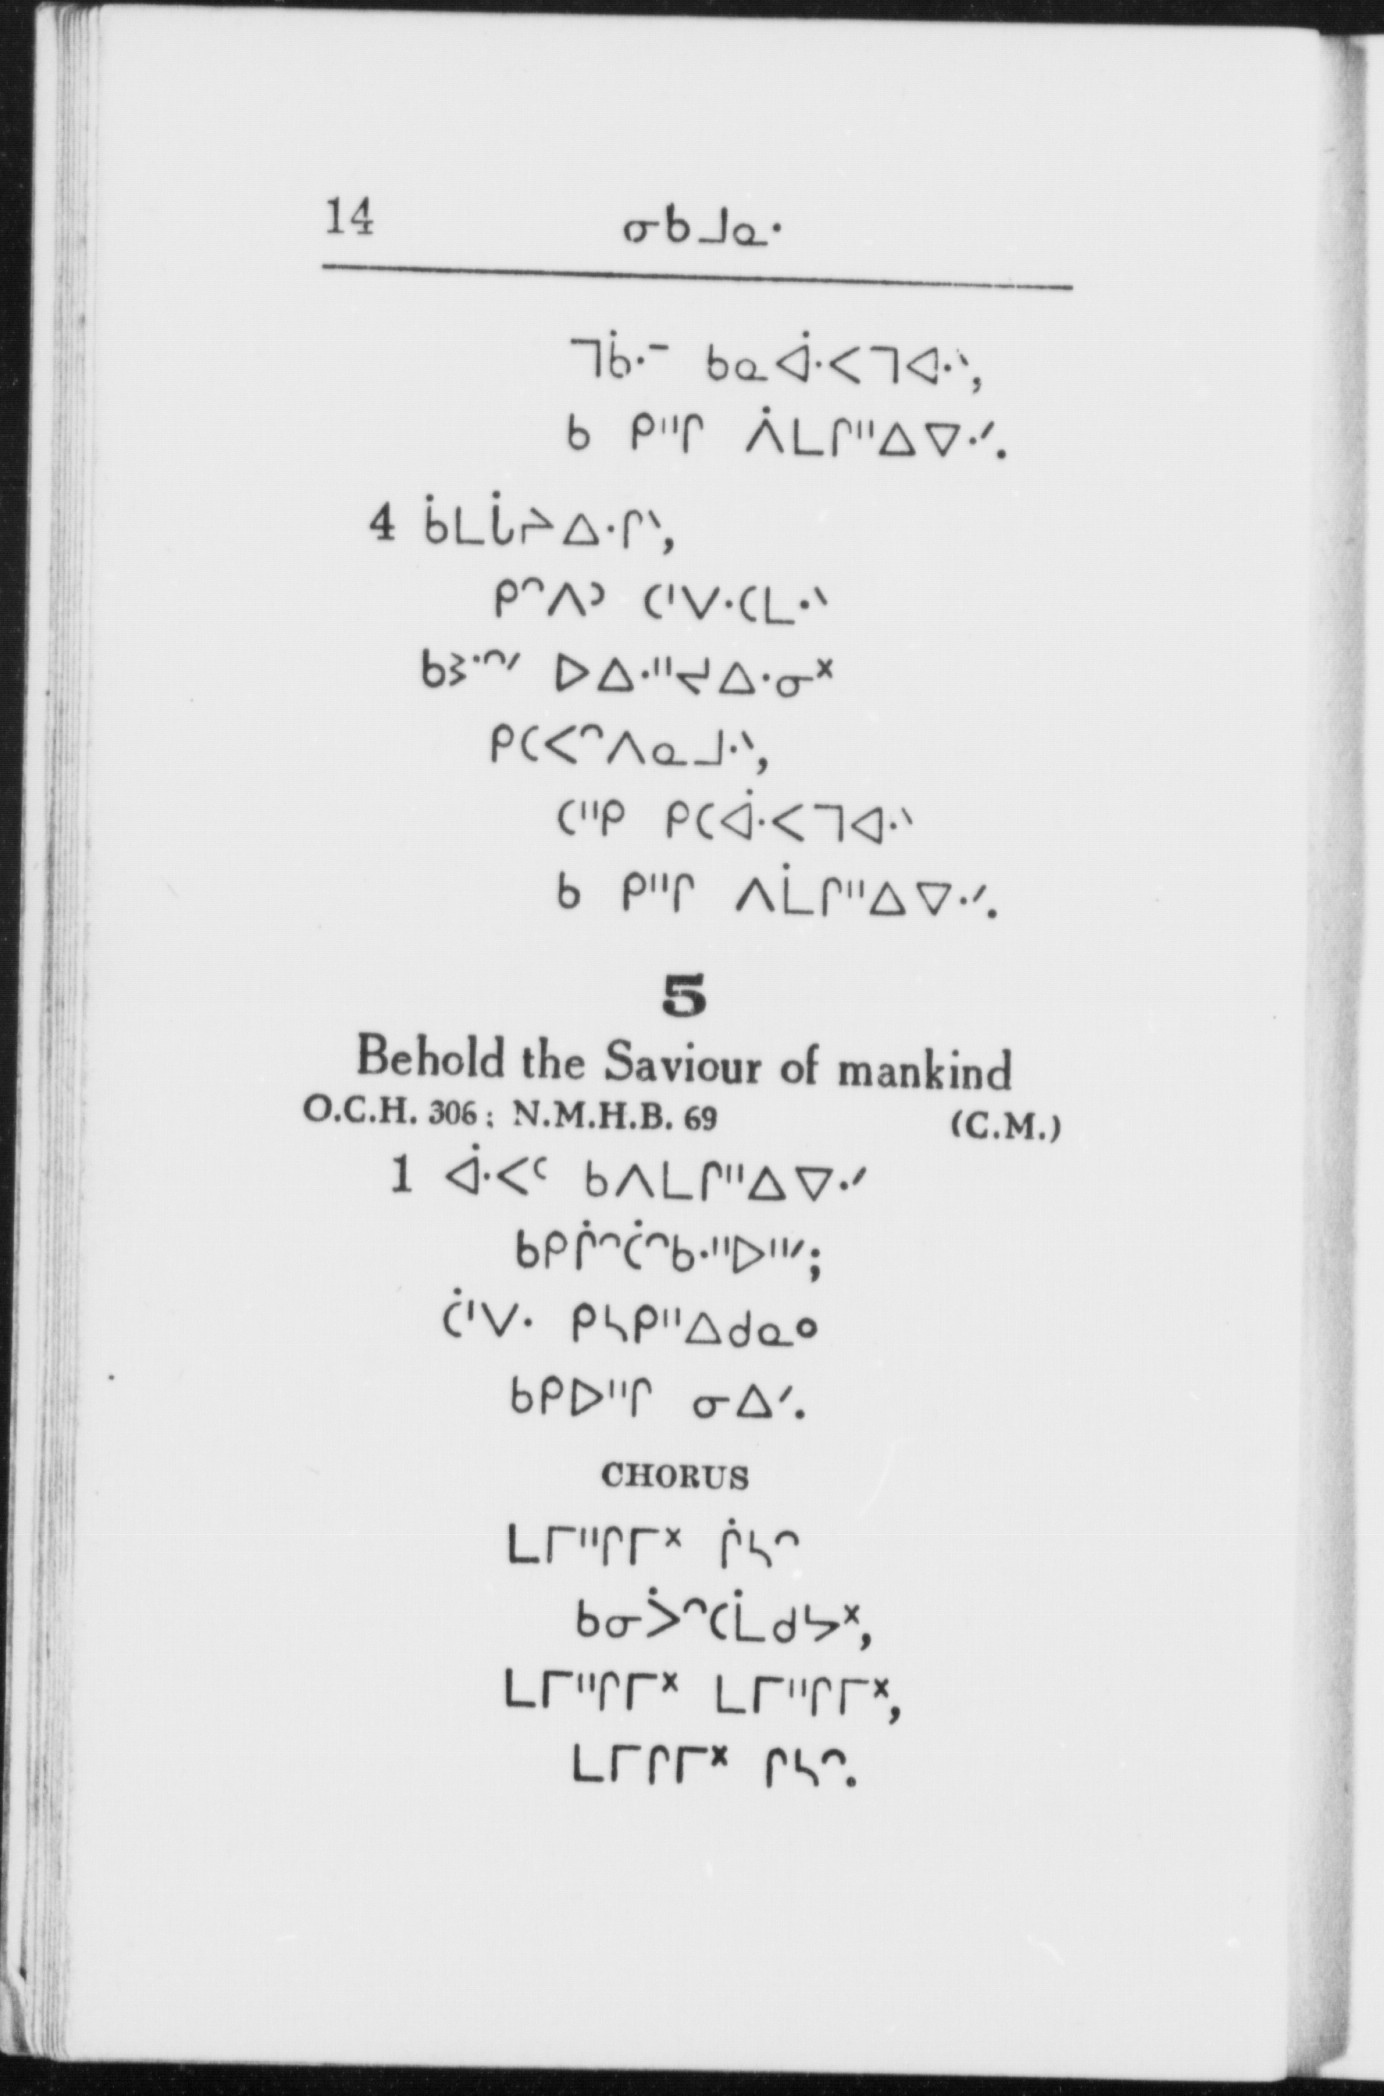 14 ᓂᑲᒧᓇ·
ᒣᑳ·ᐨ ᑲᓇᐋ·ᐸᒣᐊ·ᐠ,
ᑲ ᑭᐦᒋ ᐲᒪᒋᐦᐃᐁ·ᐟ.
4 ᑳᒪᒑᔨᐃ·ᒋᐠ,
ᑭᐢᐱᐣ ᑕᐟᐯ·ᑕᒪ·ᐠ
ᑲᔒ·ᐢᐟ ᐅᐃ·ᐦᔪᐃ·ᓂᕽ
ᑭᑕᐸᐢᐱᓇᒧ·ᐠ,
ᑕᐦᑭ ᑭᑕᐋ·ᐸᒣᐊ·ᐠ
ᑲ ᑭᐦᒋ ᐱᒫᒋᐦᐃᐁ·ᐟ.
5
Behold the Saviour of mankind
O.C.H. 306; N.M.H.B. 69 (C.M.)
1 ᐋ·ᐸᑦ ᑲᐱᒪᒋᐦᐃᐁ·ᐟ
ᑲᑭᒌᐢᑖᐢᑲ·ᐦᐅᐦᐟ;
ᑖᐟᐯ· ᑭᓴᑭᐦᐃᑯᓇᐤ
ᑲᑭᐅᐦᒋ ᓂᐃᐟ.
CHORUS
ᒪᒥᐦᒋᒥᕽ ᒌᓴᐢ
ᑲᓂᐴᐢᑕᒫᑯᔭᕽ,
ᒪᒥᐦᒋᒥᕽ ᒪᒥᐦᒋᒥᕽ,
ᒪᒥᒋᒥᕽ ᒋᓴᐢ.